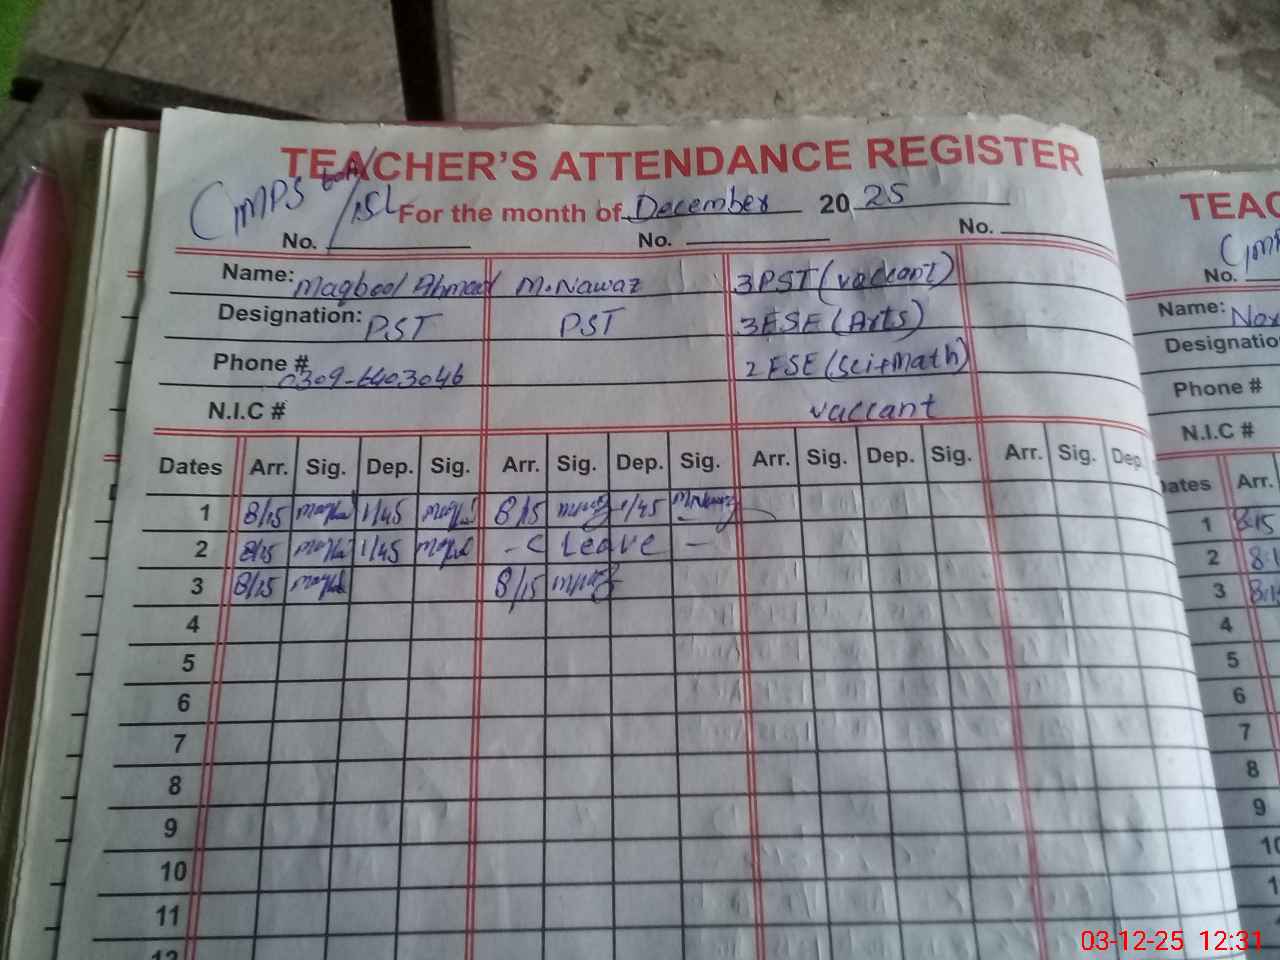 TEACHER'S ATTENDANCE REGISTER
GMPS
For the month of December 2025
No. No. No.
Name: Maqbool Ahmad M.Nawaz 3PST(vaccant)
Designation: PST PST 3ESE(Arts)
Phone # 0309-6403046 2ESE(Sci+Math)
N.I.C # vaccant
Dates Arr. Sig. Dep. Sig. Arr. Sig. Dep. Sig. Arr. Sig. Dep. Sig. Arr. Sig. Dep.
1 8/15 1/45 8/15 1/45 M.Nawaz
2 8/15 1/45 Leave
3 8/15 8/15
4
5
6
7
8
9
10
11
12
TEAC
No.
Name:
Designatio
Phone #
N.I.C #
Dates Arr.
1 8:15
2 8:1
3 8:15
4
5
6
7
8
9
10
03-12-25 12:31